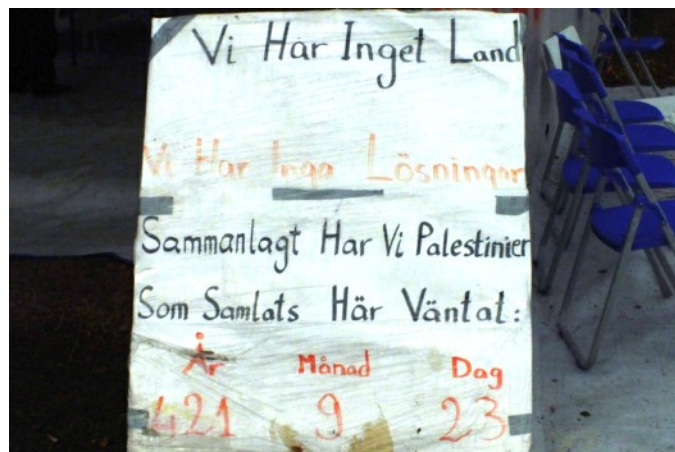 Vi Har Inget Land
Vi Har Inga Lösningar
Sammanlagt Har Vi Palestinier
Som Samlats Här Väntat:
År Månad Dag
421 9 23